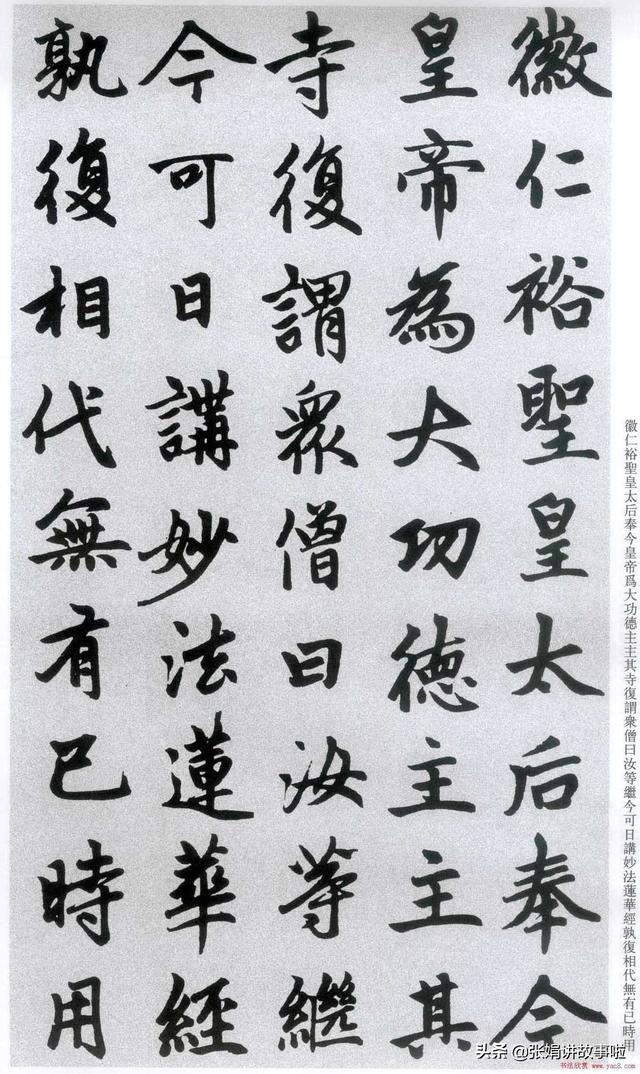 徽仁裕聖皇太后奉今
皇帝為大功德主主其
寺復謂衆僧曰汝等繼
今可日講妙法蓮華經
孰復相代無有已時用
徽仁裕聖皇太后奉今皇帝爲大功德主主其寺復謂衆僧曰汝等繼今可日講妙法蓮華經孰復相代無有已時用
头条 @张娟讲故事啦
书法欣赏 www.yac8.com